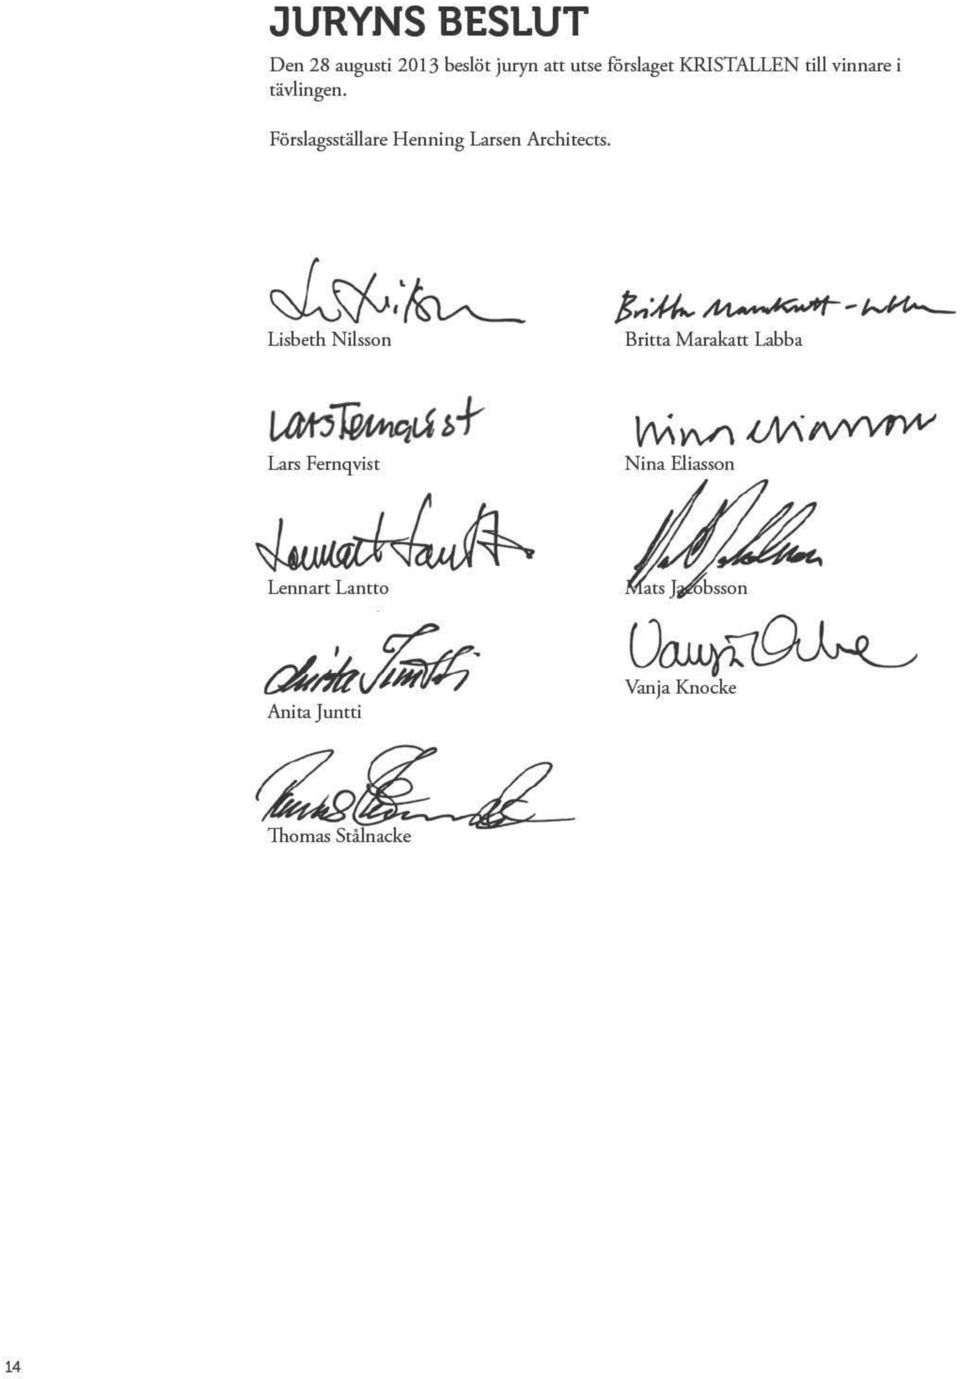 JURYNS BESLUT
Den 28 augusti 2013 beslöt juryn att utse förslaget KRISTALLEN till vinnare i
tävlingen.
Förslagsställare Henning Larsen Architects.
Britta Marakatt-Labba
Lisbeth Nilsson
Britta Marakatt Labba
Lars Fernqvist
Nina Eliasson
Lars Fernqvist
Nina Eliasson
Lennart Lantto
Lennart Lantto
Mats Jacobsson
Anita Juntti
Vanja Knocke
Anita Juntti
Thomas Stålnacke
14